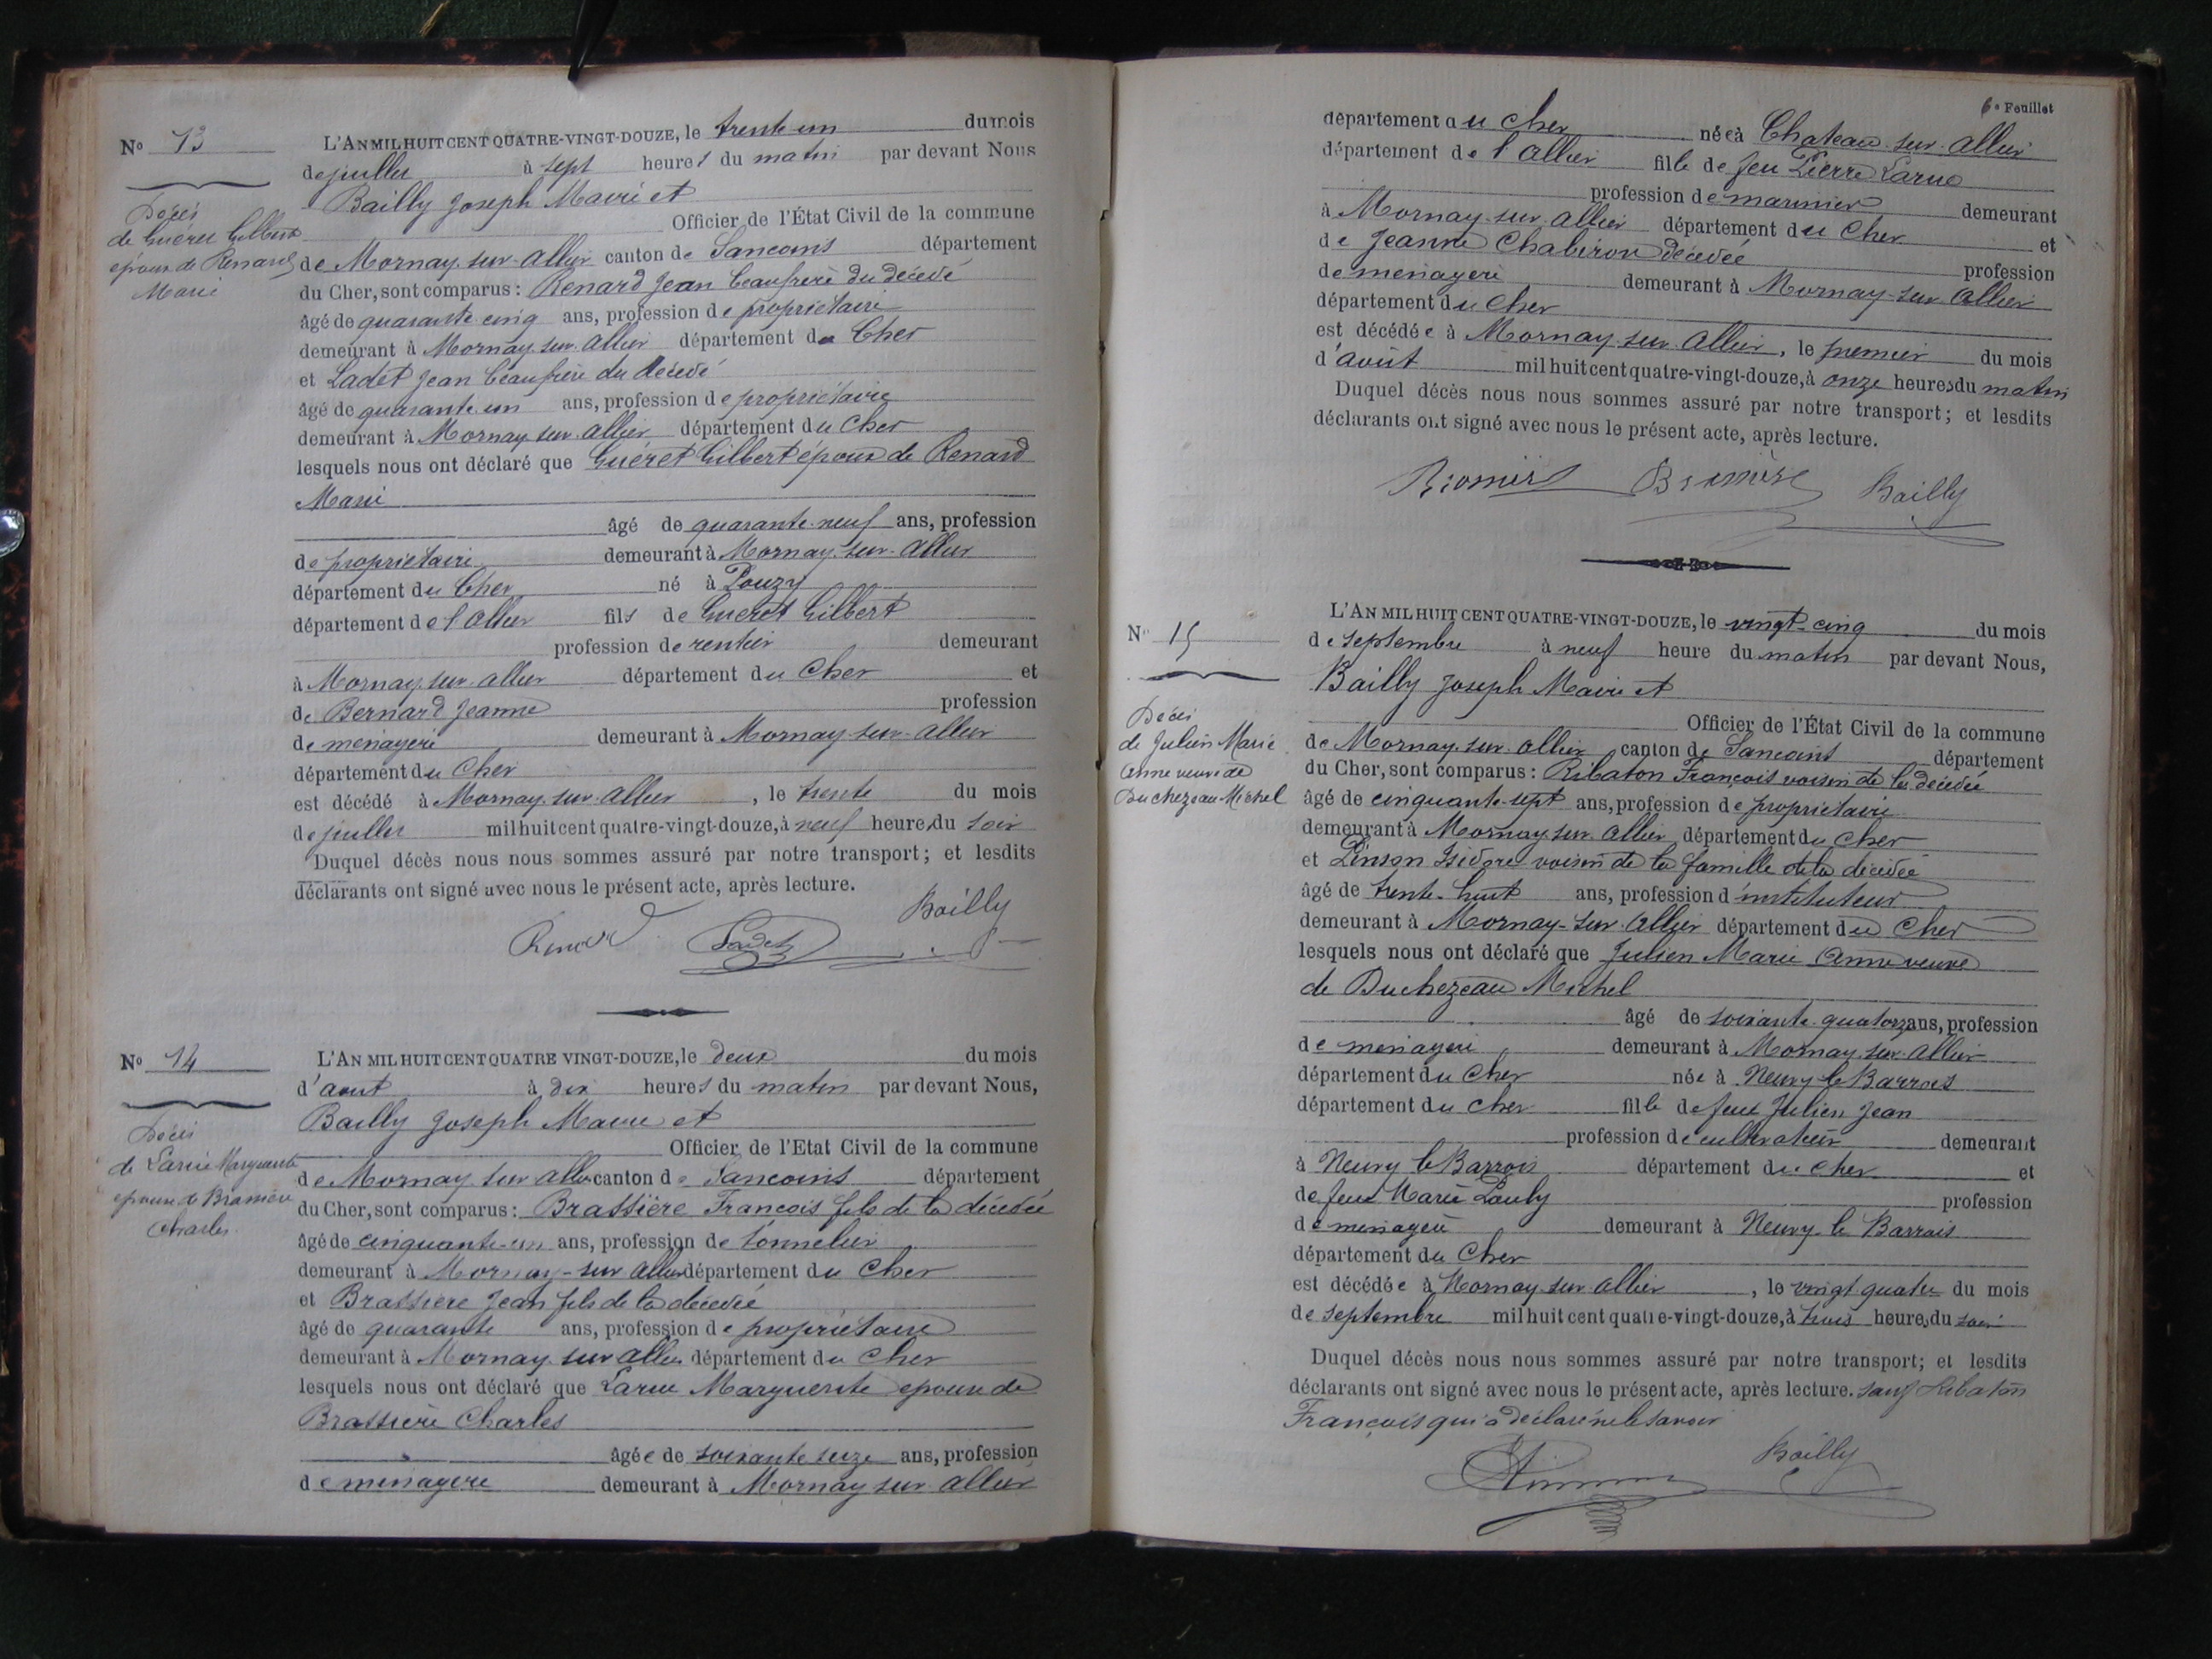 No 13
Décès
de Guéret Gilbert
époux de Renard
Marie
L'AN MIL HUIT CENT QUATRE-VINGT-DOUZE, le trente-un du mois
de juillet à sept heures du matin par devant Nous
Bailly Joseph Maire et
Officier de l'État Civil de la commune
de Mornay-sur-Allier canton de Sancoins département
du Cher, sont comparus: Renard Jean beaufrère du décédé
âgé de quarante cinq ans, profession de propriétaire
demeurant à Mornay-sur-Allier département du Cher
et Ladet Jean beaufrère du décédé
âgé de quarante un ans, profession de propriétaire
demeurant à Mornay-sur-Allier département du Cher
lesquels nous ont déclaré que Guéret Gilbert époux de Renard
Marie
âgé de quarante-neuf ans, profession
de propriétaire demeurant à Mornay-sur-Allier
département du Cher né à Pouzy
département de l'Allier fils de Gueret Gilbert
profession de rentier demeurant
à Mornay-sur-Allier département du Cher et
de Bernard Jeanne profession
de ménagère demeurant à Mornay-sur-Allier
département du Cher
est décédé à Mornay-sur-Allier, le trente du mois
de juillet mil huit cent quatre-vingt-douze, à neuf heures du soir
Duquel décès nous nous sommes assuré par notre transport; et lesdits
déclarants ont signé avec nous le présent acte, après lecture.
Bailly
Renard Ladet
No 14
Décès
de Larue Marguerite
épouse de
Charles
L'AN MIL HUIT CENT QUATRE VINGT-DOUZE, le deux du mois
d'août à dix heures du matin par devant Nous,
Bailly Joseph Maire et
Officier de l'Etat Civil de la commune
de Mornay sur Allier canton de Sancoins département
du Cher, sont comparus: Brassière François fils de la décédée
âgé de cinquante-un ans, profession de tonnelier
demeurant à Mornay-sur Allier département du Cher
et Brassière Jean fils de la décédée
âgé de quarante ans, profession de propriétaire
demeurant à Mornay sur Allier département du Cher
lesquels nous ont déclaré que Larue Marguerite épouse de
Brassière Charles
âgée de soixante seize ans, profession
de ménagère demeurant à Mornay sur Allier
6e Feuillet
département du Cher née à Chateau-sur-Allier
département de l'Allier fille de feu Pierre Larue
profession de marinier demeurant
à Mornay-sur-Allier département du Cher et
de Jeanne Chabiron décédée profession
de ménagère demeurant à Mornay-sur-Allier
département du Cher
est décédée à Mornay-sur-Allier, le premier du mois
d'août mil huit cent quatre-vingt-douze, à onze heures du matin
Duquel décès nous nous sommes assuré par notre transport; et lesdits
déclarants ont signé avec nous le présent acte, après lecture.
Bailly
No 15
Décès
de Julien Marie
Anne veuve de
Duchezeau Michel
L'AN MIL HUIT CENT QUATRE-VINGT-DOUZE, le vingt-cinq du mois
de septembre à neuf heure du matin par devant Nous,
Bailly Joseph Maire et
Officier de l'État Civil de la commune
de Mornay-sur-Allier canton de Sancoins département
du Cher, sont comparus: Ribaton François voisin de la décédée
âgé de cinquante-sept ans, profession de propriétaire
demeurant à Mornay-sur-Allier département du Cher
et Pinson Isidore voisin de la famille de la décédée
âgé de trente-huit ans, profession d'instituteur
demeurant à Mornay-sur-Allier département du Cher
lesquels nous ont déclaré que Julien Marie Anne veuve
de Duchezeau Michel
âgé de soixante-quatorze ans, profession
de ménagère demeurant à Mornay-sur-Allier
département du Cher née à Neuvy-le-Barrois
département du Cher fille de feu Julien Jean
profession de cultivateur demeurant
à Neuvy le Barrois département du Cher et
de feue Marie Pauly profession
de ménagère demeurant à Neuvy-le Barrois
département du Cher
est décédée à Mornay-sur-Allier, le vingt quatre du mois
de septembre mil huit cent quatre-vingt-douze, à trois heures du soir
Duquel décès nous nous sommes assuré par notre transport; et lesdits
déclarants ont signé avec nous le présent acte, après lecture. sauf Ribaton
François qui a déclaré ne le savoir
Bailly